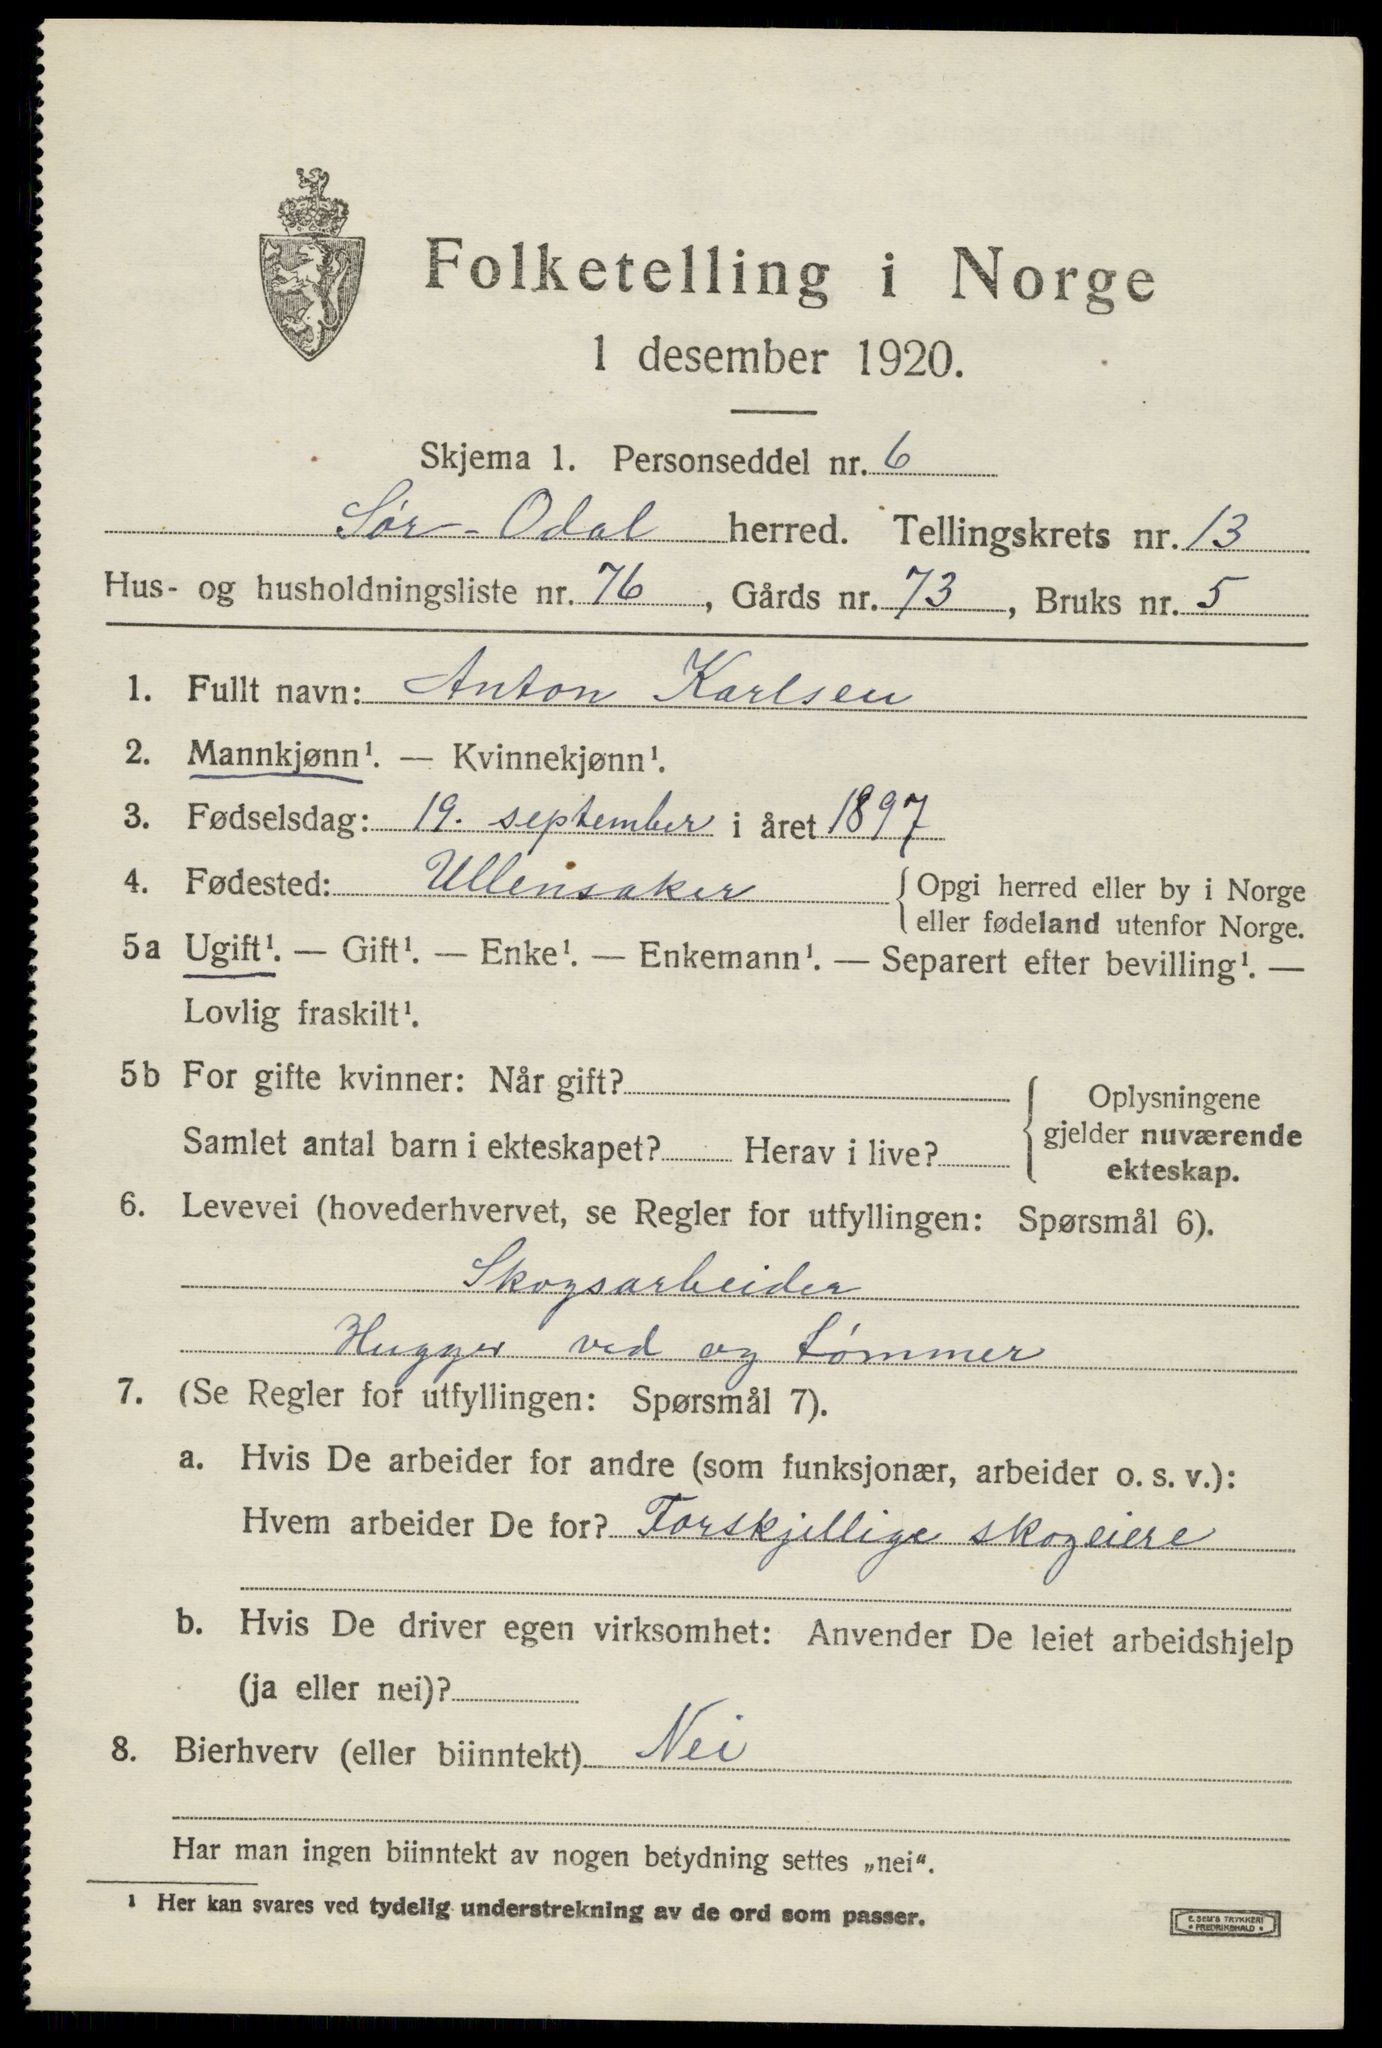 Folketelling i Norge
1 desember 1920.
Skjema 1. Personseddel nr. 6
Sør-Odal herred. Tellingskrets nr. 13
Hus- og husholdningsliste nr. 76, Gårds nr. 73, Bruks nr. 5
1. Fullt navn: Anton Karlsen
2. Mannkjønn¹. — Kvinnekjønn¹.
3. Fødselsdag: 19. september i året 1897
4. Fødested: Ullensaker { Opgi herred eller by i Norge
eller fødeland utenfor Norge.
5a Ugift¹. — Gift¹. — Enke¹. — Enkemann¹. — Separert efter bevilling¹. —
Lovlig fraskilt¹.
5b For gifte kvinner: Når gift? { Oplysningene
gjelder nuværende
ekteskap.
Samlet antal barn i ekteskapet? Herav i live?
6. Levevei (hovederhvervet, se Regler for utfyllingen: Spørsmål 6).
Skogsarbeider
Hugger ved og tømmer
7. (Se Regler for utfyllingen: Spørsmål 7).
a. Hvis De arbeider for andre (som funksjonær, arbeider o. s. v.):
Hvem arbeider De for? Forskjellige skogeiere
b. Hvis De driver egen virksomhet: Anvender De leiet arbeidshjelp
(ja eller nei)?
8. Bierhverv (eller biinntekt) Nei
Har man ingen biinntekt av nogen betydning settes „nei“.
¹ Her kan svares ved tydelig understrekning av de ord som passer.
E. SEM'S TRYKKERI
• FREDRIKSHALD •